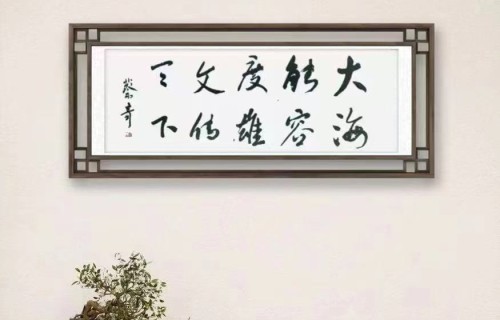 大海
能容
度雄
文传
天下
蔡奇